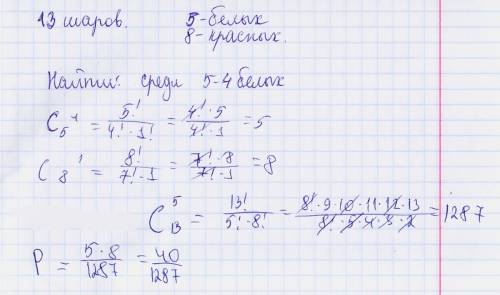 13 шаров. 5-белых
8-красных.
Найти: среди 5-4 белых
C₅⁴ = 5!/(4!·1!) = (4!·5)/(4!·1) = 5
C₈¹ = 8!/(7!·1) = (7!·8)/(7!·1) = 8
C₁₃⁵ = 13!/(5!·8!) = (8!·9·10·11·12·13)/(8!·5·4·3·2) = 1287
P = (5·8)/1287 = 40/1287